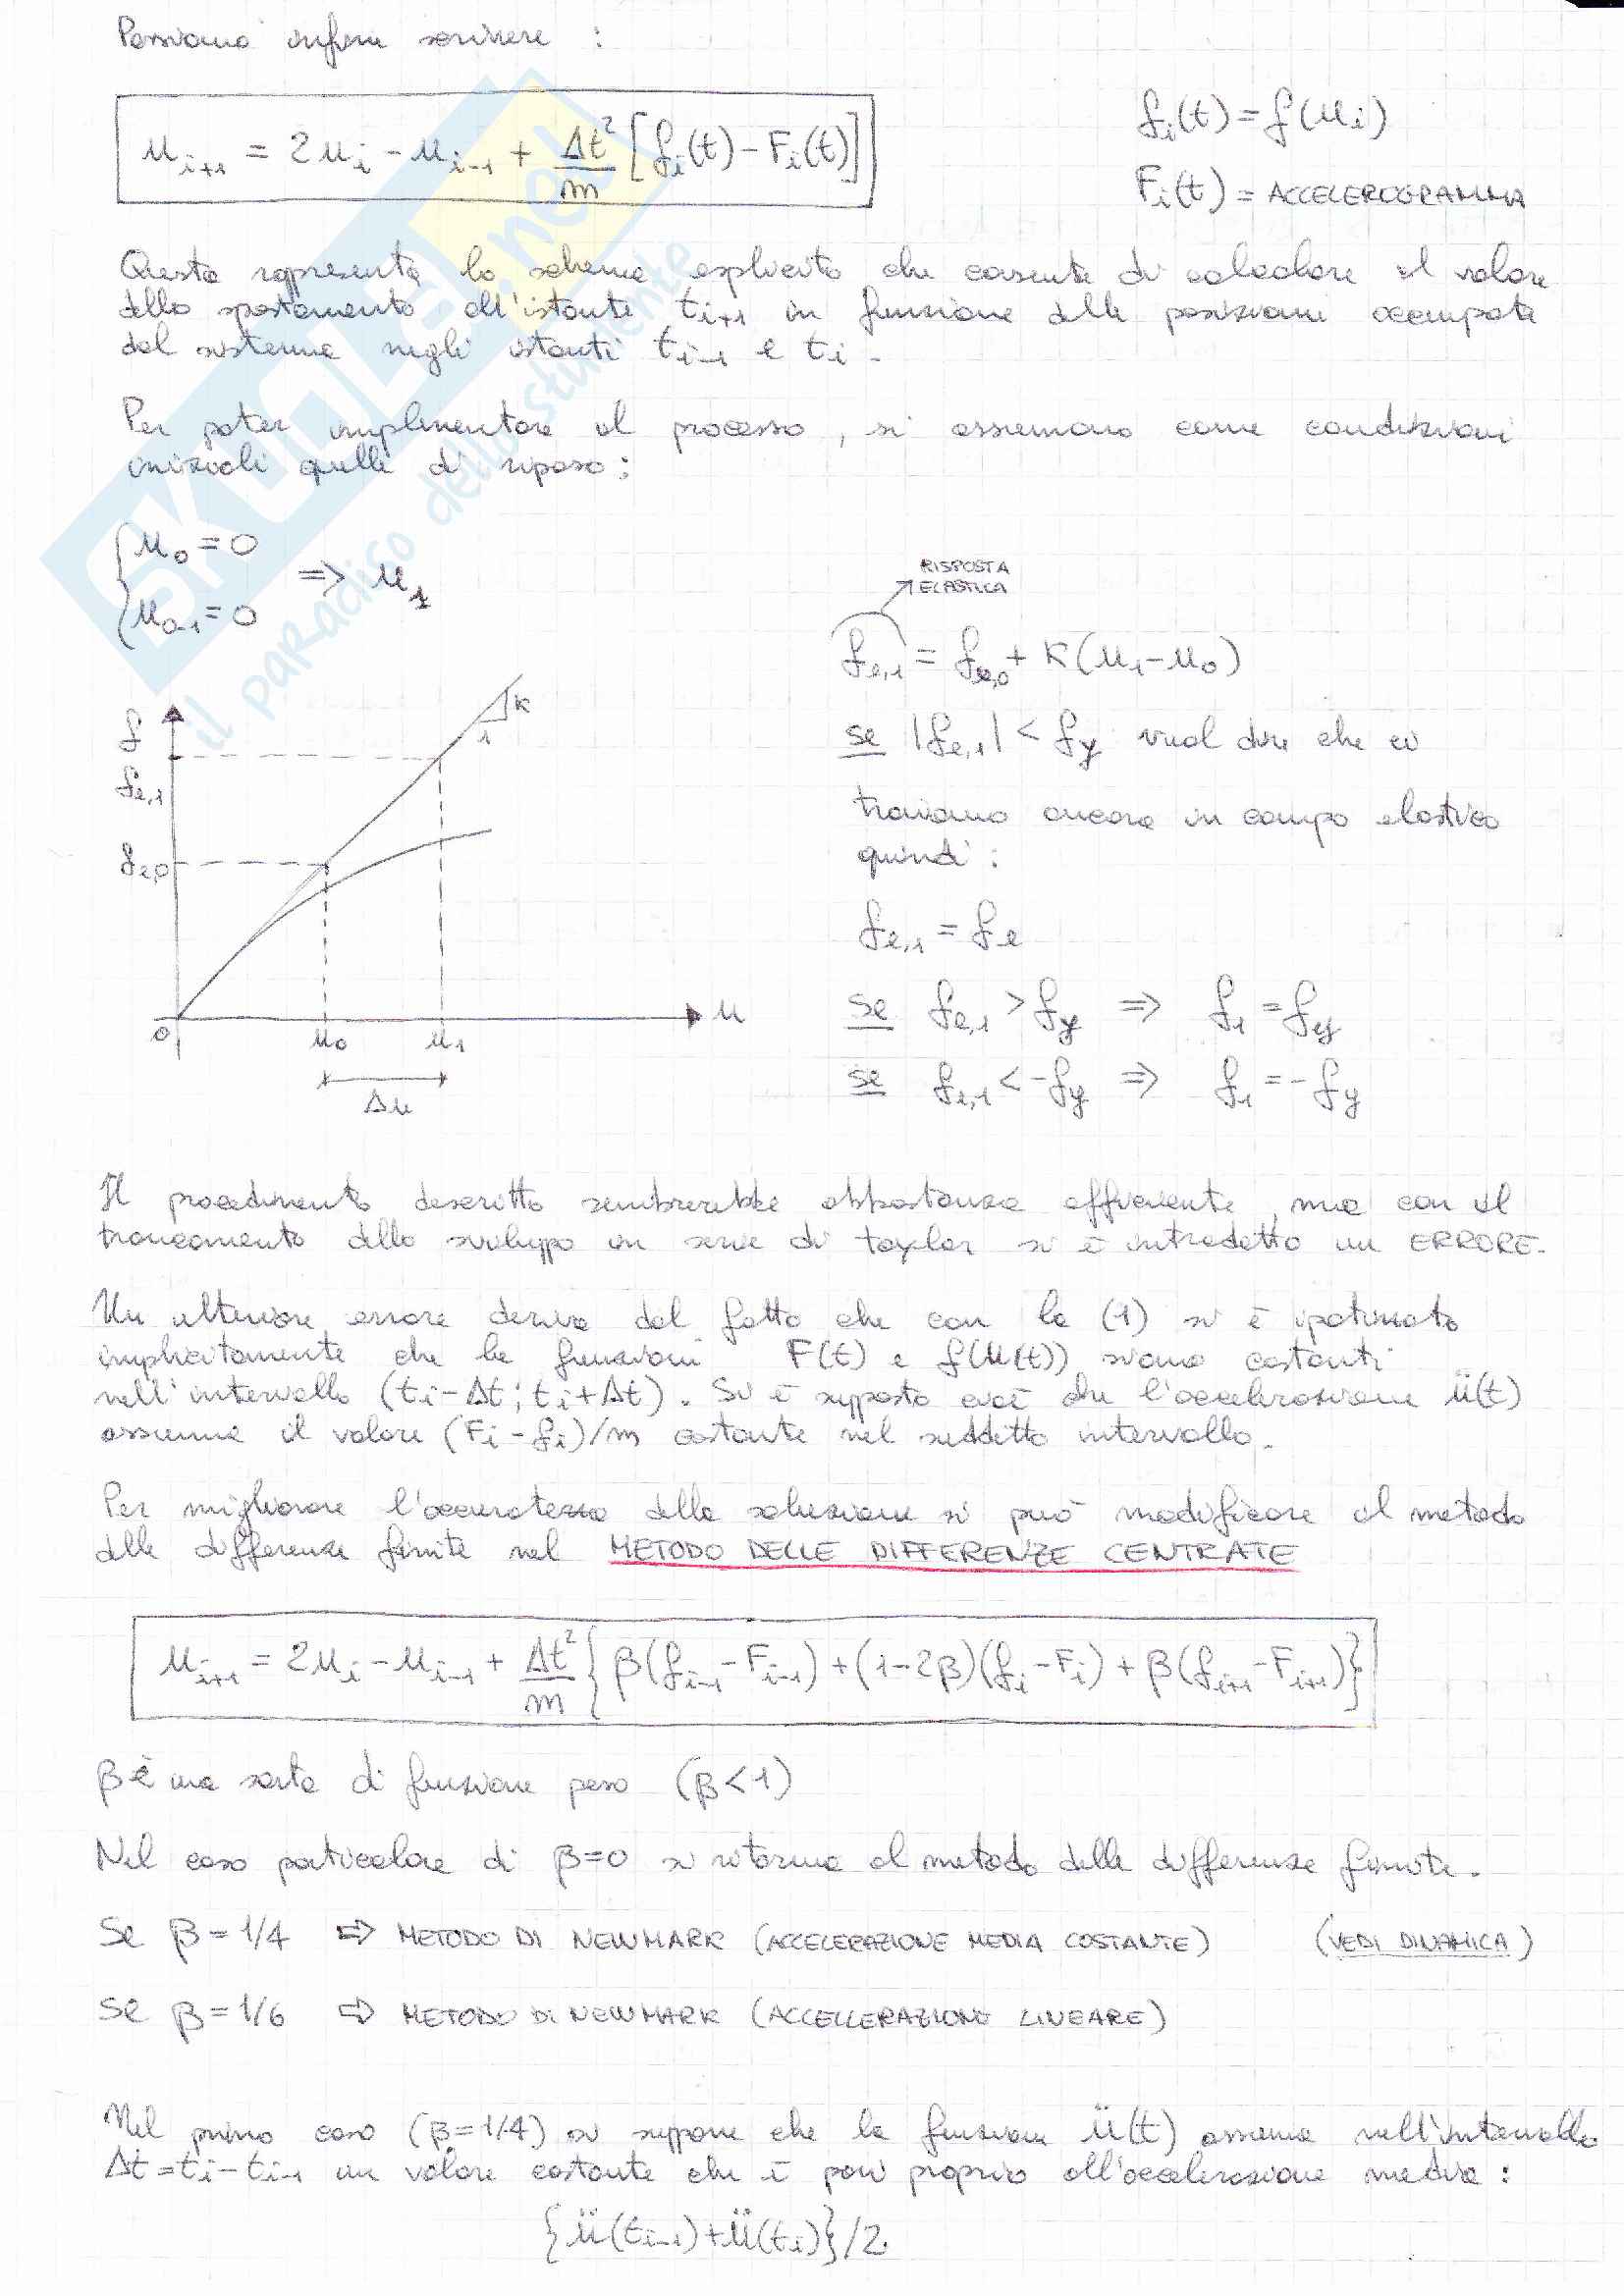 Possiamo infine scrivere :
u_{i+1} = 2u_i - u_{i-1} + Δt²/m [f_i(t) - F_i(t)]
f_i(t) = f(u_i)
F_i(t) = ACCELEROGRAMMA
Questa rappresenta lo schema esplicito che consente di calcolare il valore
dello spostamento all'istante t_{i+1} in funzione delle posizioni occupate
dal sistema negli istanti t_{i-1} e t_i.
Per poter implementare il processo, si assumono come condizioni
iniziali quelle di riposo:
{ u_0 = 0
u_{0-1} = 0
=> u_1
RISPOSTA
ELASTICA
f_{e,1} = f_{e,0} + K(u_1 - u_0)
se |f_{e,1}| < f_y vuol dire che ci
troviamo ancora in campo elastico
quindi :
f_{e,1} = f_e
se f_{e,1} > f_y => f_1 = f_y
se f_{e,1} < -f_y => f_1 = -f_y
f
f_{e,1}
f_{e,0}
K
1
0
u_0
u_1
u
Δu
Il procedimento descritto sembrerebbe abbastanza efficiente, ma con il
troncamento dello sviluppo in serie di taylor si è introdotto un ERRORE.
Un ulteriore errore deriva dal fatto che con la (1) si è ipotizzato
implicitamente che le funzioni F(t) e f(u(t)) siano costanti
nell'intervallo (t_i-Δt; t_i+Δt). Si è supposto cioè che l'accelerazione ü(t)
assuma il valore (F_i - f_i)/m costante nel suddetto intervallo.
Per migliorare l'accuratezza della soluzione si può modificare il metodo
delle differenze finite nel METODO DELLE DIFFERENZE CENTRATE
u_{i+1} = 2u_i - u_{i-1} + Δt²/m { β(f_{i-1} - F_{i-1}) + (1-2β)(f_i - F_i) + β(f_{i+1} - F_{i+1}) }
β è una sorta di funzione peso (β < 1)
Nel caso particolare di β=0 si ritorna al metodo delle differenze finite.
Se β = 1/4 ⇨ METODO DI NEWMARK (ACCELERAZIONE MEDIA COSTANTE) (VEDI DINAMICA)
Se β = 1/6 ⇨ METODO DI NEWMARK (ACCELLERAZIONE LINEARE)
Nel primo caso (β=1/4) si suppone che la funzione ü(t) assuma nell'intervallo
Δt = t_i - t_{i-1} un valore costante che è pari proprio all'accelerazione media :
{ü(t_{i-1}) + ü(t_i)}/2.
SKUOLA.net
il paradiso dello studente